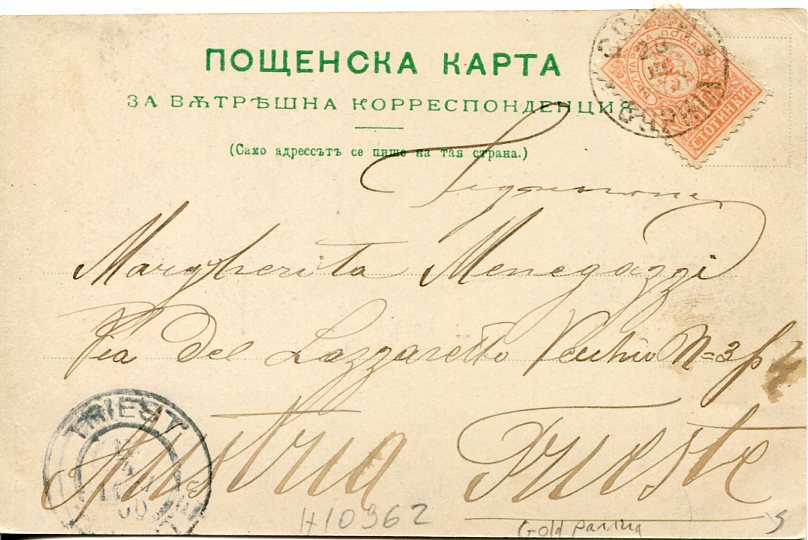 ПОЩЕНСКА КАРТА
ЗА ВѪТРѢШНА КОРРЕСПОНДЕНЦИЯ
(Само адрессътъ се пише на тая страна.)
СТОТИНКИ
Margherita Menegazzi
Via Del Lazzaretto Vecchio N=3
Austria Trieste
TRIEST
H10962
Gold